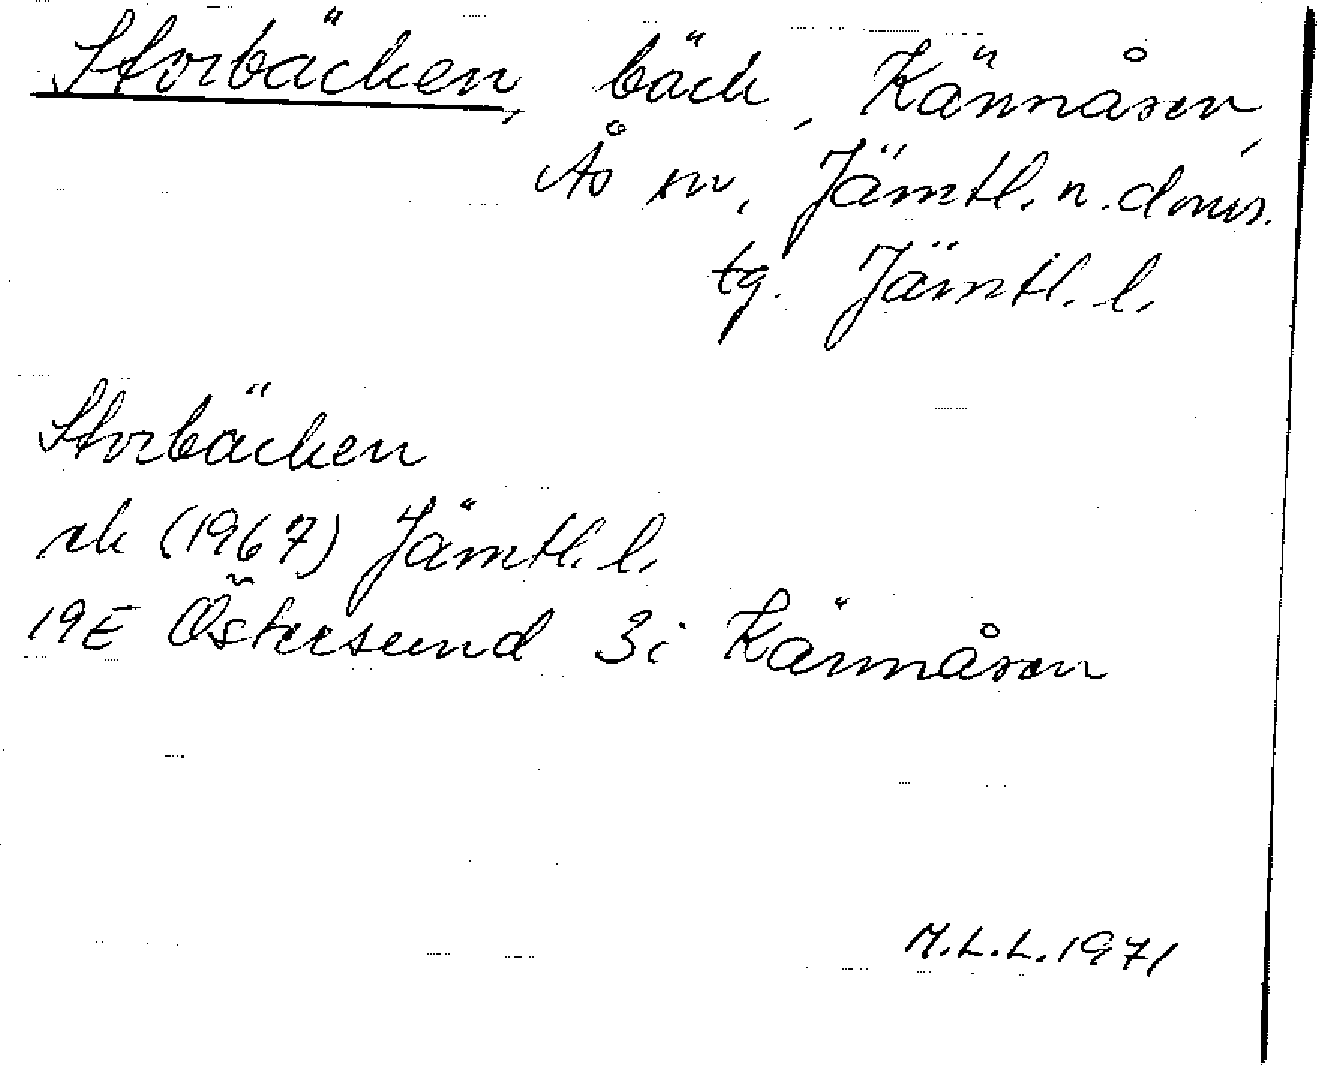 Storbäcken, bäck, Kännåsen,
Ås sn, Jämtl. n. doms.
tg. Jämtl. l.
Storbäcken
rk (1967) Jämtl. l.
19E Östersund 3i Kännåsen
M.L.L. 1971